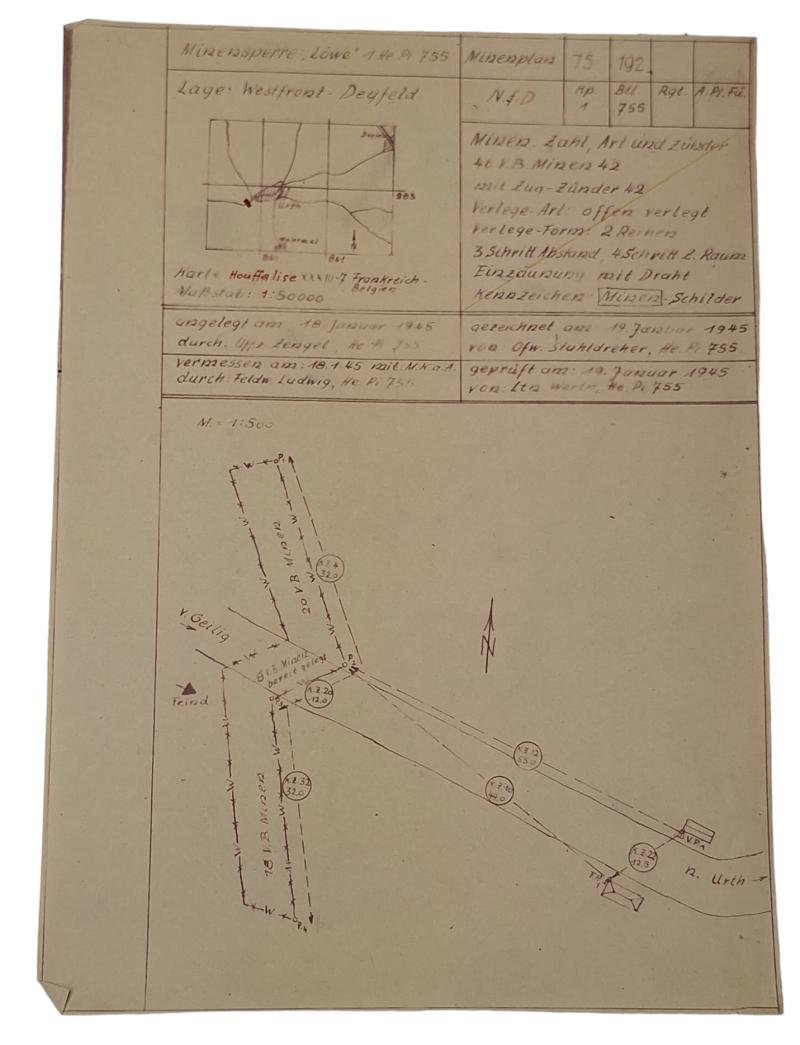 Minensperre „Löwe" 1 He. Pi 755
Minenplan 75 192
Lage: Westfront - Deyfeld
N.f.D
Kp. 1
Btl 755
Rgt. A.Pi.Fü.
Urth
863
861
Karte Houffalise XXXIII-7 Frankreich-
Belgien
Maßstab: 1:50000
Minen. Zahl, Art und Zünder
46 V.B. Minen 42
mit Zug-Zünder 42
Verlege-Art: offen verlegt
Verlege-Form: 2 Reihen
3 Schritt Abstand, 4 Schritt Z. Raum
Einzäunung mit Draht
Kennzeichen: Minen-Schilder
angelegt am 18. Januar 1945
durch: Uffz Zengel, He. Pi 755
gezeichnet am 19. Januar 1945
von Ofw. Stuhldreher, He. Pi. 755
vermessen am: 18.1.45 mit: M.K.a.A.
durch: Feldw. Ludwig, He. Pi 755
geprüft am: 19. Januar 1945
von: Ltn He. Pi. 755
M. = 1:500
W P.1
20 V.B. Minen
K.Z.4
32,0
v. Gerlig
N
8 V.B Minen
bereit gelegt
P.2
K.Z.20
12,0
Feind
18 V.B. Minen
K.Z.32
32,0
K.Z.12
K.Z.10
V.P.1
K.Z.22
12,3
n. Urth
W P.4